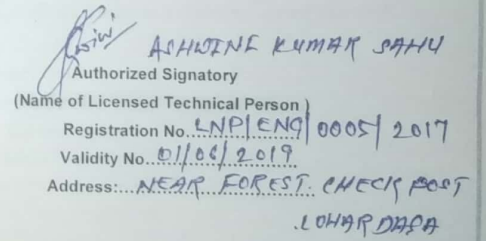 ASHWINE KUMAR SAHU
Authorized Signatory
(Name of Licensed Technical Person )
Registration No. LNP/ENG/0005/2017
Validity No. 01/06/2019
Address:... NEAR FOREST. CHECK POST
LOHARDAGA